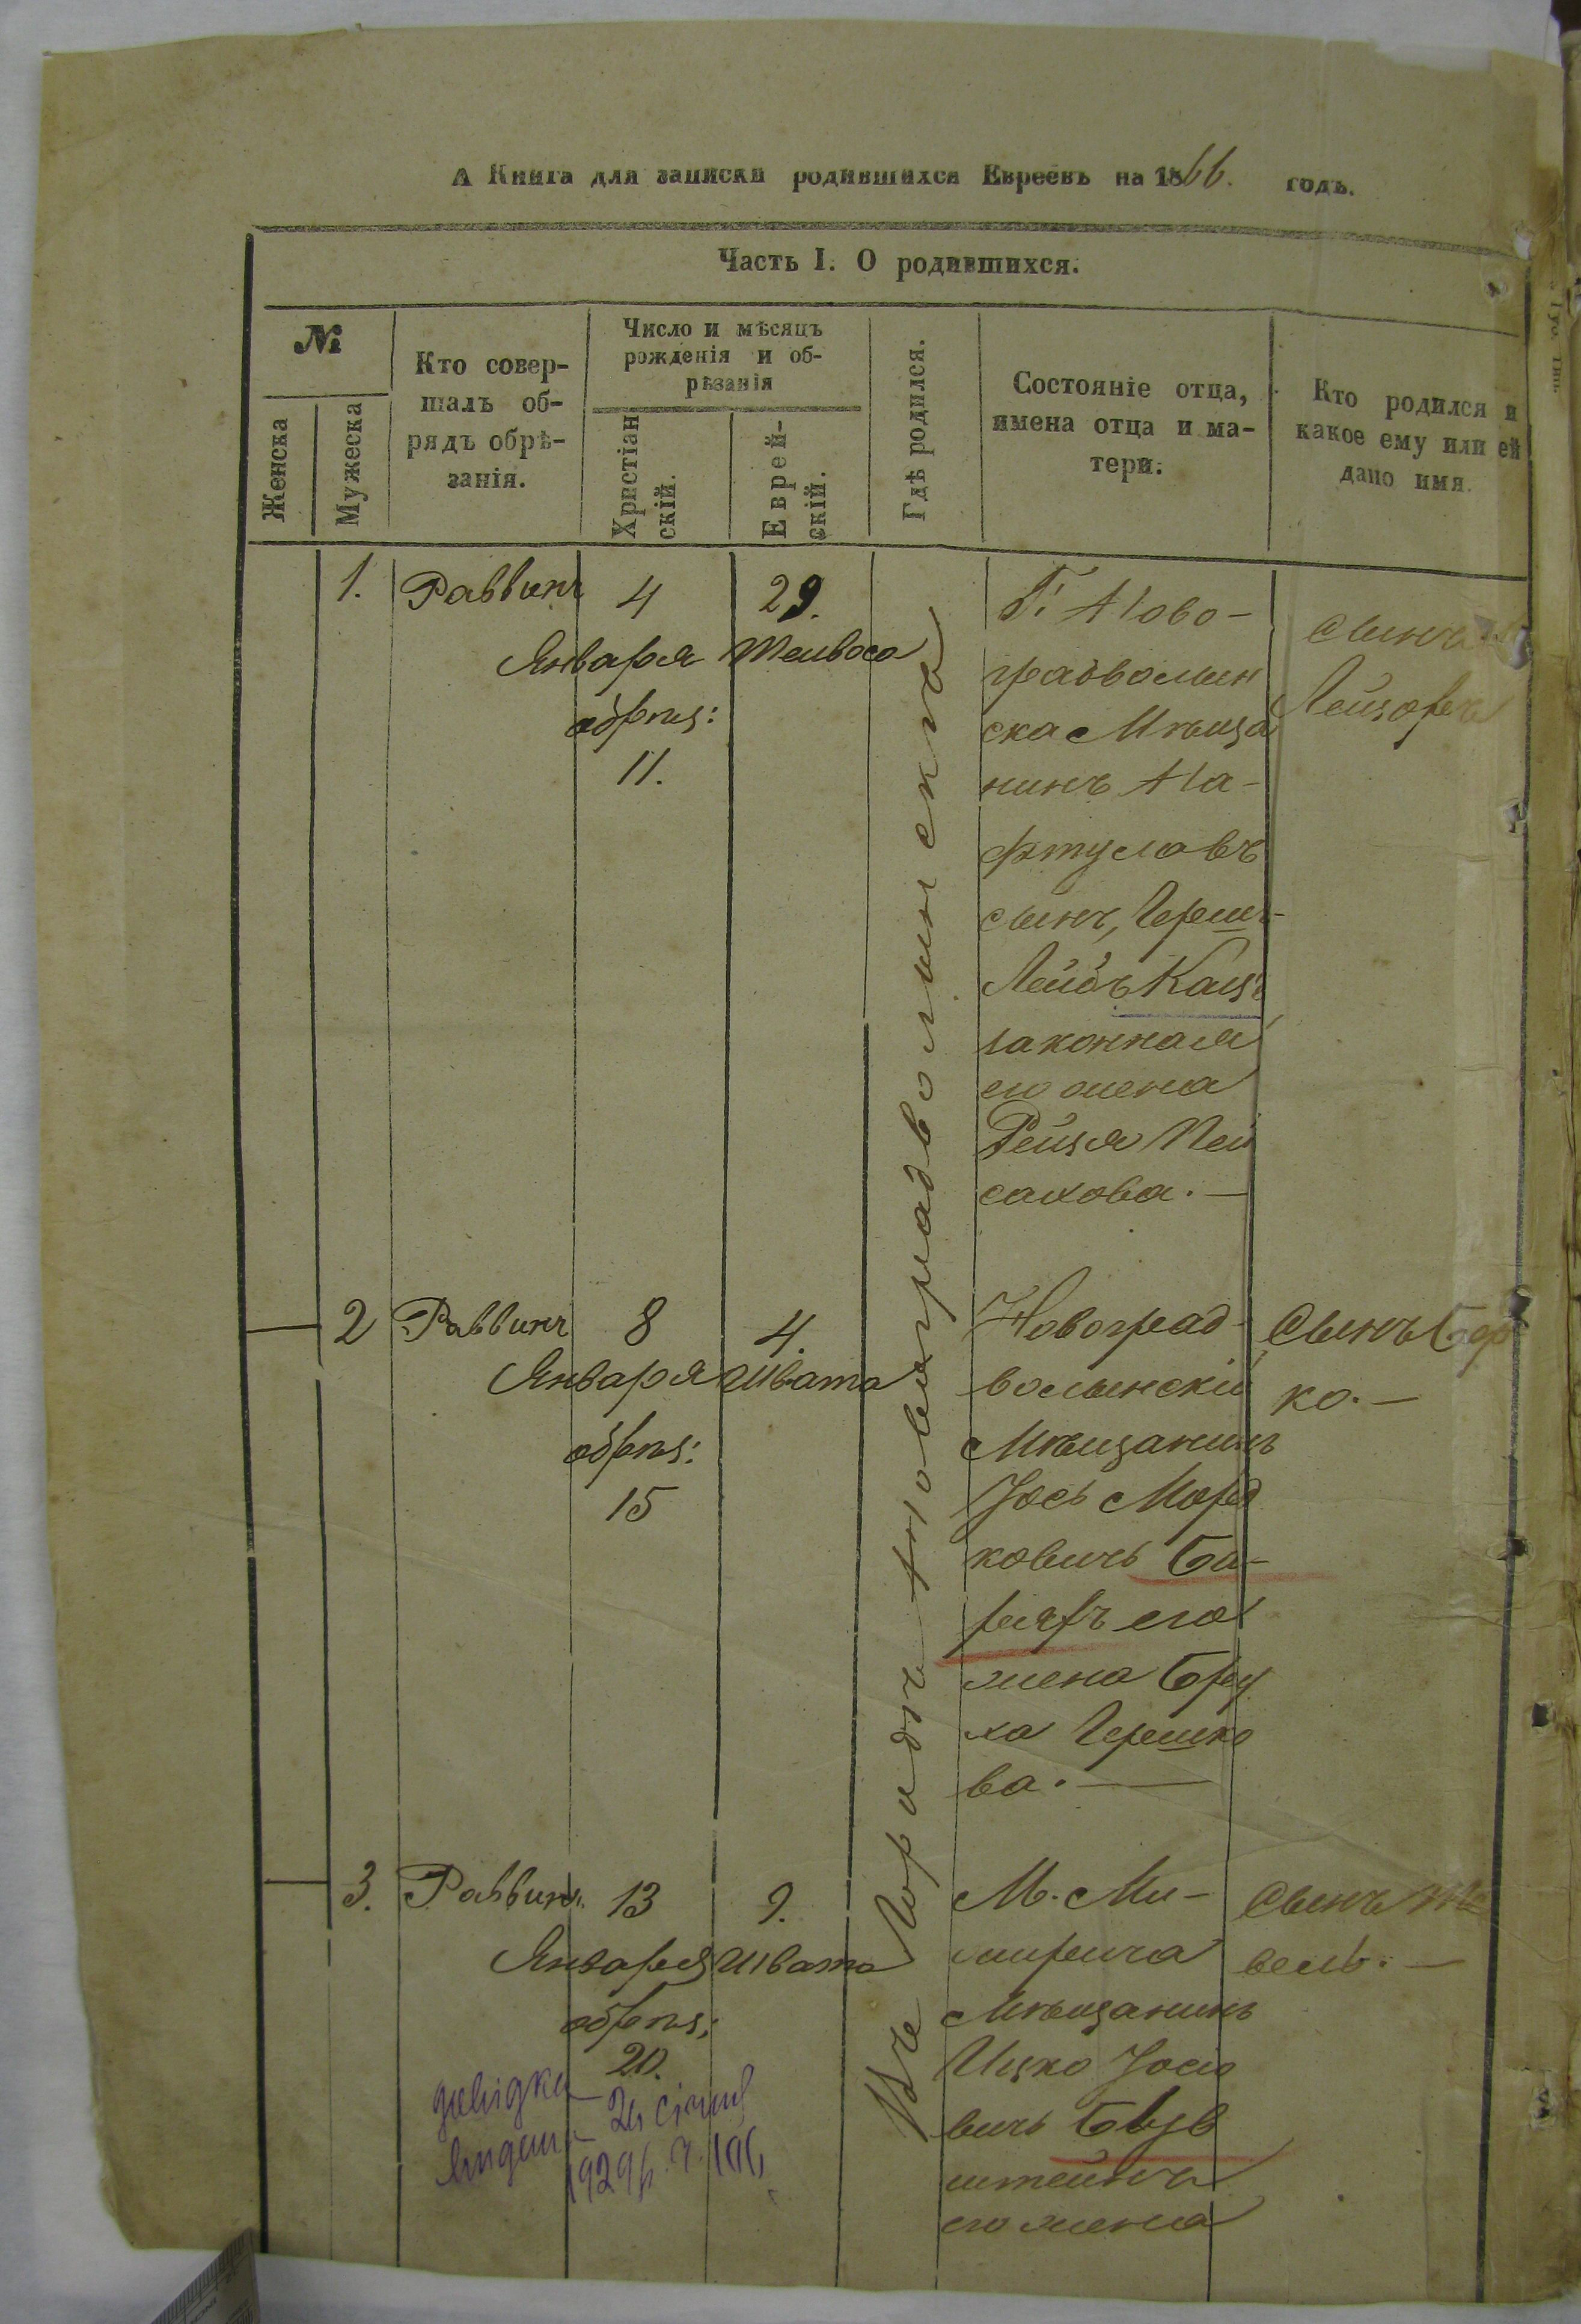 А Книга для записки родившихся Евреевъ на 1866. годъ.
Часть I. О родившихся.
№
Женска
Мужеска
Кто совер-
шалъ об-
рядъ обрѣ-
занія.
Число и мѣсяцъ
рожденія и об-
рѣзанія
Христіан
скій.
Еврей-
скій.
Гдѣ родился.
Состояніе отца,
имена отца и ма-
тери.
Кто родился и
какое ему или ей
дано имя.
Въ Городѣ Новоградволынскѣ
1. Раввинъ 4 29.
Января Тейвеса
обрѣз:
11.
Г. Ново-
градволын
ска Мѣща
нинъ На-
фтулавъ
сынъ, Гершъ-
Лейбъ Кацъ
законная
его жена
Рейзя Пей
сахова. —
Сынъ
Лейзоръ
2 Раввинъ 8 4.
Января Швата
обрѣз:
15
Новоград-
волынскій
Мѣщанинъ
Іось Морд
ковичъ
его
жена Бру
ха Гершко
ва. —
Сынъ Бор
ко. —
3. Раввинъ 13 9.
Января Швата
обрѣз:
20.
М. Ми-
Мѣщанинъ
Ицко Іосіо
вичъ
штейнъ
его жена
Сынъ
вель. —
довідка
видана — 24 січня
1929 р.